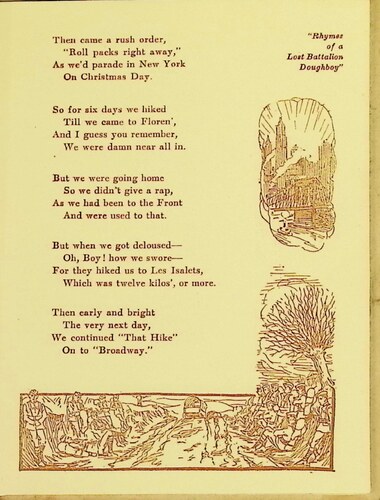 "Rhymes
of a
Lost Battalion
Doughboy"
Then came a rush order,
"Roll packs right away,"
As we'd parade in New York
On Christmas Day.
So for six days we hiked
Till we came to Floren',
And I guess you remember,
We were damn near all in.
But we were going home
So we didn't give a rap,
As we had been to the Front
And were used to that.
But when we got deloused—
Oh, Boy! how we swore—
For they hiked us to Les Isalets,
Which was twelve kilos', or more.
Then early and bright
The very next day,
We continued "That Hike"
On to "Broadway."